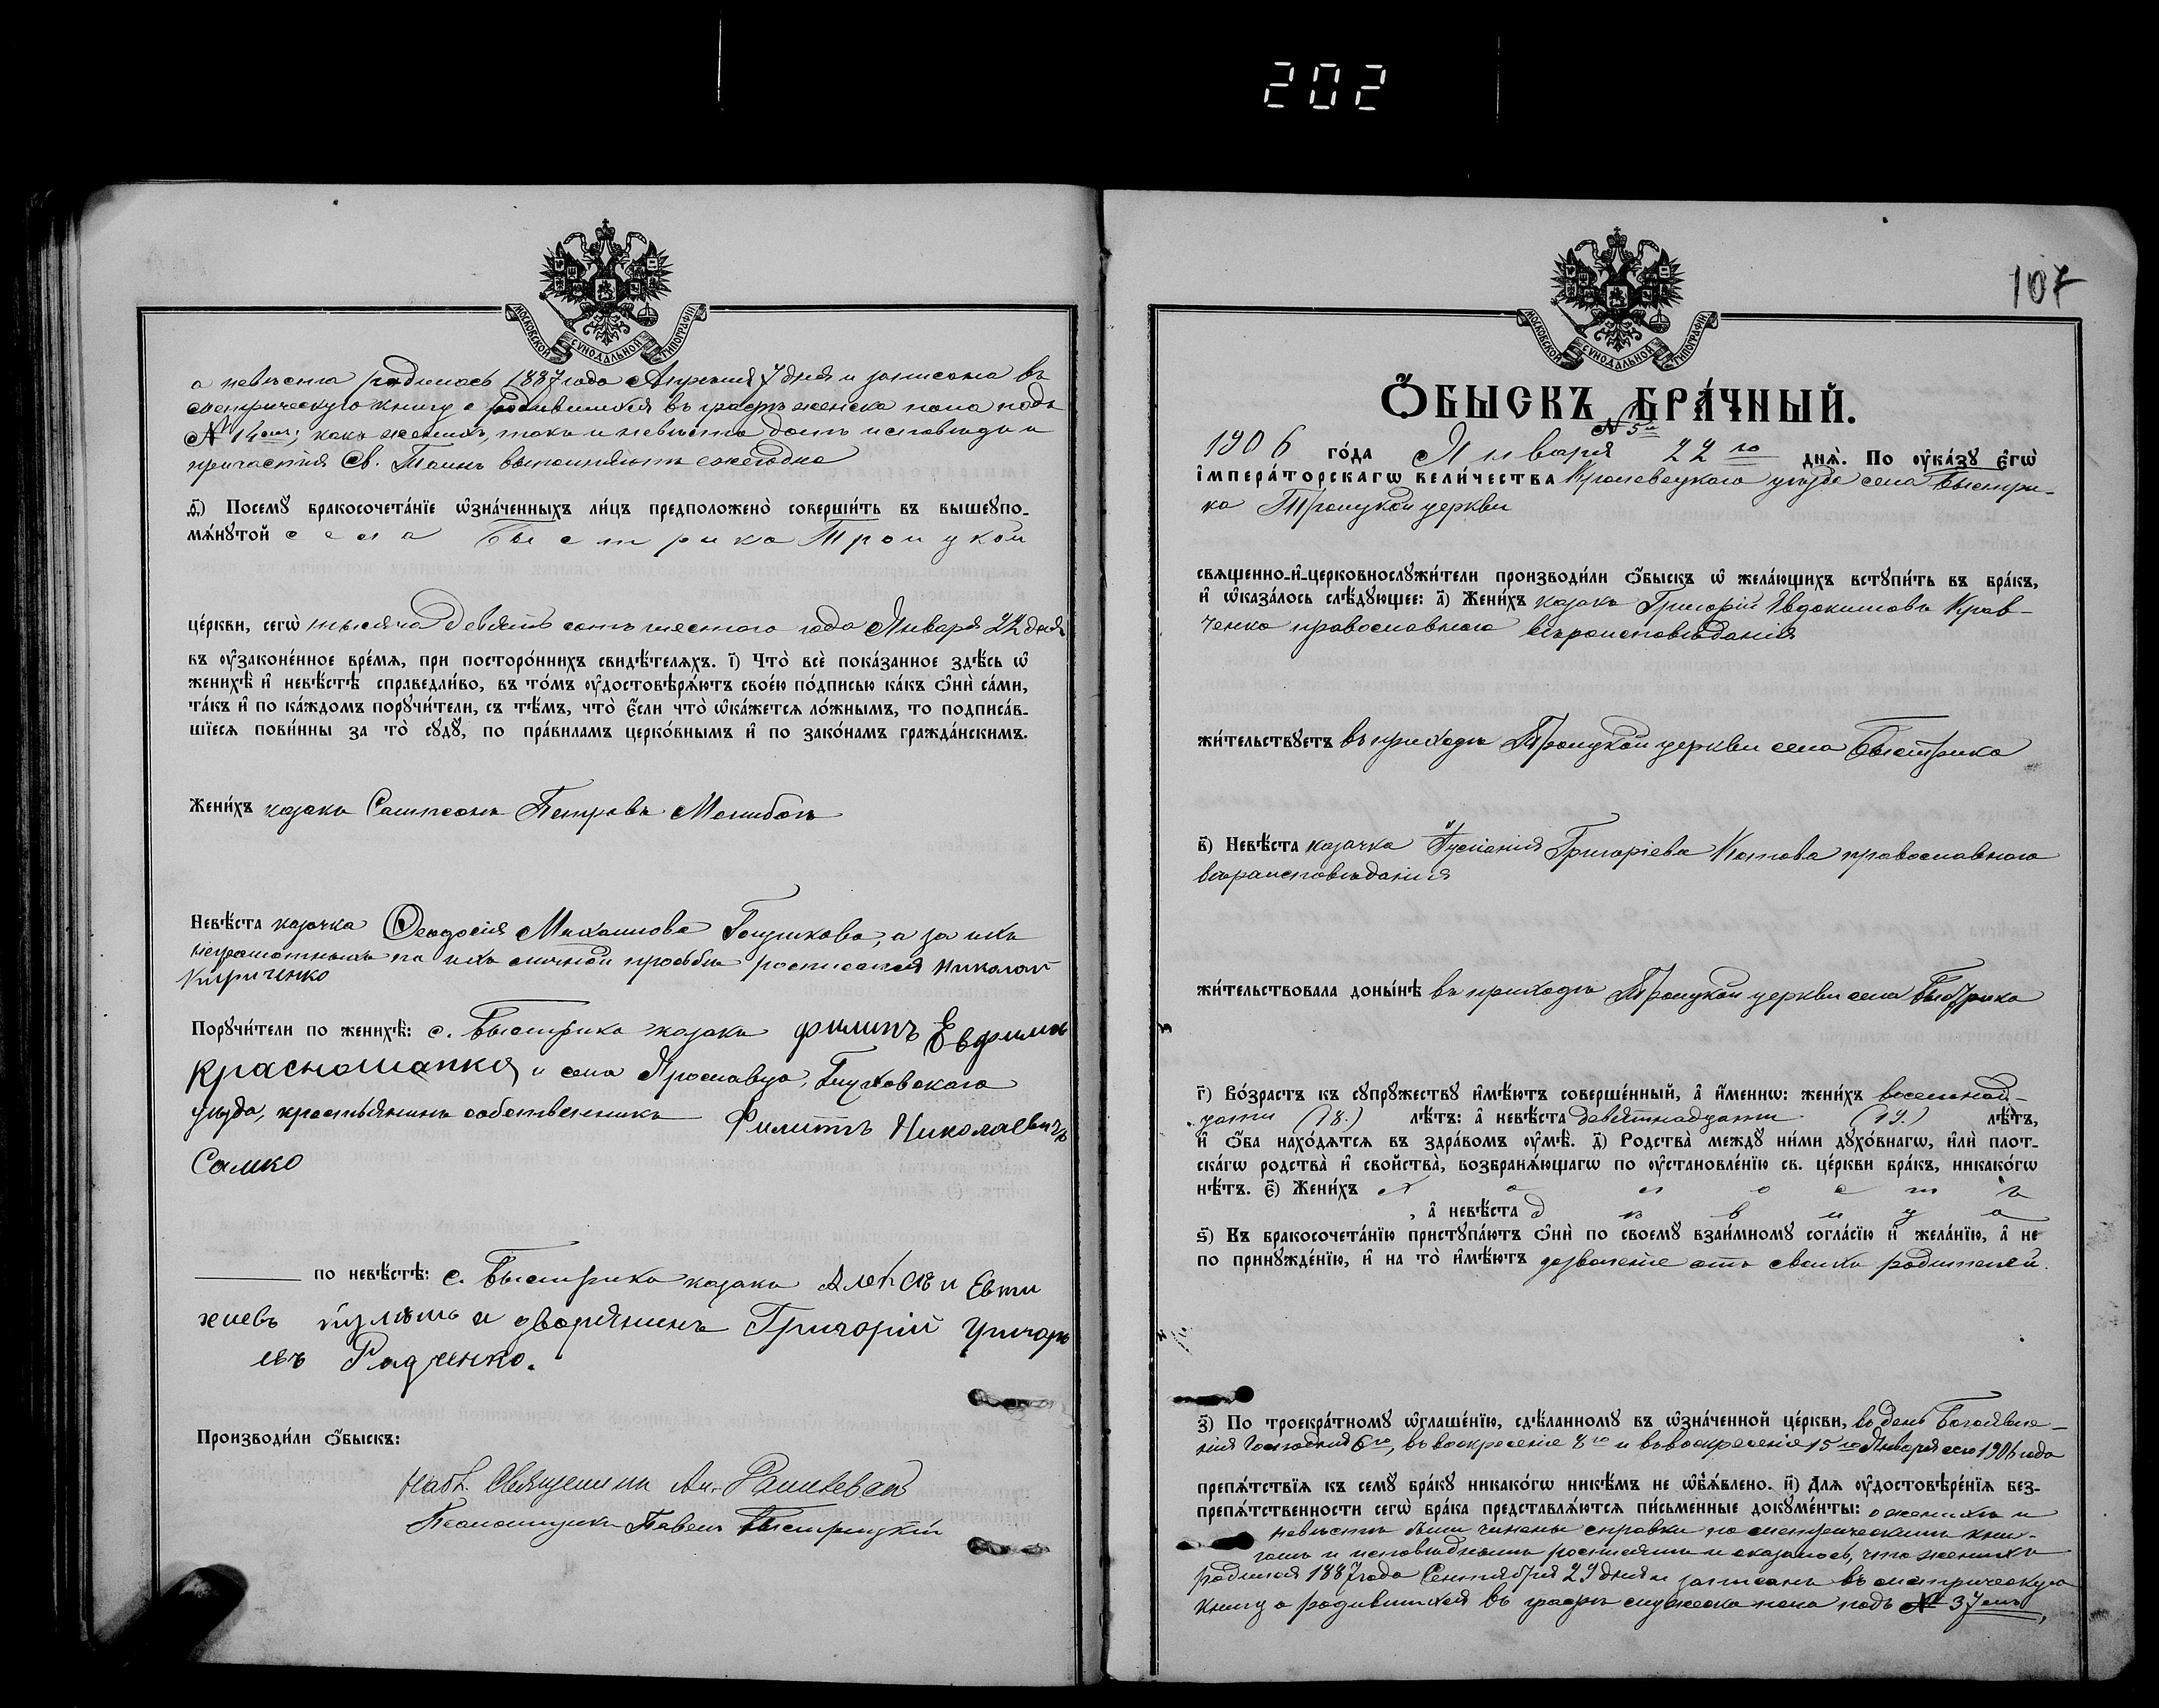 202
МОСКОВСКОЙ СУНОДАЛЬНОЙ ТИПОГРАФІИ
а невѣста родилась 1887 года Апрѣля 7 дня и записана въ
метрическую книгу о родившихся въ графѣ женска пола подъ
№ 14 емъ; какъ женихъ, такъ и невѣста долгъ исповѣди и
причастія Св. Таинъ выполняютъ ежегодно
ѳ҃) Посемꙋ бракосочета́нїе ѡ҆зна́ченныхъ ли́цъ предположено̀ соверши́ть въ вышеꙋпо-
мѧ́нꙋтой села Быстрика Троицкой
це́ркви, сегѡ̀ тысяча девять сотъ шестого года Января 22 дня
въ ᲂу҆законе́нное вре́мѧ, при посторо́ннихъ свидѣ́телѧхъ. і҃) Что̀ всѐ пока́занное здѣ́сь ѡ҆
женихѣ̀ и҆ невѣ́стѣ справедли́во, въ то́мъ ᲂу҆достовѣрѧ́ютъ свое́ю по́дписью ка́къ ѻ҆нѝ са́ми,
та́къ и҆ по ка́ждомъ порꙋчи́тели, съ тѣ́мъ, что̀ є҆́сли что̀ ѡ҆ка́жется ло́жнымъ, то подписа́в-
шїеся пови́нны за то̀ сꙋдꙋ̀, по пра́виламъ церко́внымъ и҆ по зако́намъ гражда́нскимъ.
Жени́хъ казакъ Сампсонъ Петровъ
Невѣ́ста казачка Ѳеодосія Михаилова а за ихъ
неграмотныхъ по ихъ личной просьбѣ росписался Николай
Кириченко
Порꙋчи́тели по женихѣ̀: с. Быстрика казакъ Филипъ Евфимъ
Красношапка, и села Ярославца, Глуховского
уѣзда, крестьянинъ собственникъ Филиппъ Николаевичъ
Самко
по невѣ́стѣ: с. Быстрика казакъ Алексѣи Евти
хиевъ и дворянинъ Григорій Григорь
евъ Радченко.
Производи́ли ѻ҆́быскъ:
Наст. Священникъ Ан.
Псаломщикъ Павелъ Быстрицкій
МОСКОВСКОЙ СУНОДАЛЬНОЙ ТИПОГРАФІИ
107
Ѻ҆́БЫСКЪ БРА́ЧНЫЙ.
№ 5 й
1906 го́да Января 22 го днѧ̀. По ᲂу҆ка́зꙋ є҆гѡ̀
і҆мпера́торскагѡ вели́чества Кролевецкого уѣзда села Быстри-
ка Троицкой церкви
свѧщенно-и҆-церковнослꙋжи́тели производи́ли ѻ҆́быскъ ѡ҆ жела́ющихъ встꙋпи́ть въ бра́къ,
и҆ ѡ҆каза́лось слѣ́дꙋющее: а҃) Жени́хъ казакъ Григорій Евдокимовъ Крав-
ченко православнаго вѣроисповѣданія
жи́тельствꙋетъ въ приходѣ Троицкой церкви села Быстрика
в҃) Невѣ́ста казачка Григоріева православнаго
вѣроисповѣданія
жи́тельствовала доны́нѣ въ приходѣ Троицкой церкви села Быстрика
г҃) Во́зрастъ къ сꙋпрꙋ́жествꙋ и҆мѣ́ютъ соверше́нный, а҆ и҆́менно: жени́хъ восемнад-
цати (18.) лѣ́тъ: а҆ невѣ́ста девятнадцати (19.) лѣ́тъ,
и҆ ѻ҆́ба нахо́дѧтся въ здра́вомъ ᲂу҆мѣ̀. д҃) Родства̀ междꙋ ни́ми дꙋхо́внагѡ, и҆лѝ плот-
ска́гѡ родства̀ и҆ свойства̀, возбранѧ́ющагѡ по ᲂу҆становле́нїю св. це́ркви бра́къ, никако́гѡ
нѣ́тъ. є҃) Жени́хъ холостъ
, а҆ невѣ́ста дѣвица
ѕ҃) Къ бракосочета́нїю пристꙋпа́ютъ ѻ҆нѝ по своемꙋ̀ взаи́мномꙋ согла́сїю и҆ жела́нїю, а҆ не
по принꙋжде́нїю, и҆ на то̀ и҆мѣ́ютъ дозволеніе отъ своихъ родителей.
з҃) По троекра́тномꙋ ѡ҆глаше́нїю, сдѣ́ланномꙋ въ ѡ҆зна́ченной це́ркви, въ день Богоявле-
нія Господня 6 го, въ воскресеніе 8 го и въ воскресеніе 15 го Января сего 1906 года
препѧ́тствїѧ къ семꙋ̀ бра́кꙋ никако́гѡ никѣ́мъ не ѡ҆б̾ѧ́влено. и҃) Длѧ ᲂу҆достовѣре́нїѧ без-
препѧ́тственности сегѡ̀ бра́ка представлѧ́ются пи́сьменные докꙋме́нты: о женихѣ и
невѣстѣ были чинены справки по метрическимъ кни-
гамъ и исповѣднымъ росписямъ и оказалось, что женихъ
родился 1887 года Сентября 29 дня и записанъ въ метрическую
книгу о родившихся въ графѣ мужеска пола подъ № 37 емъ,